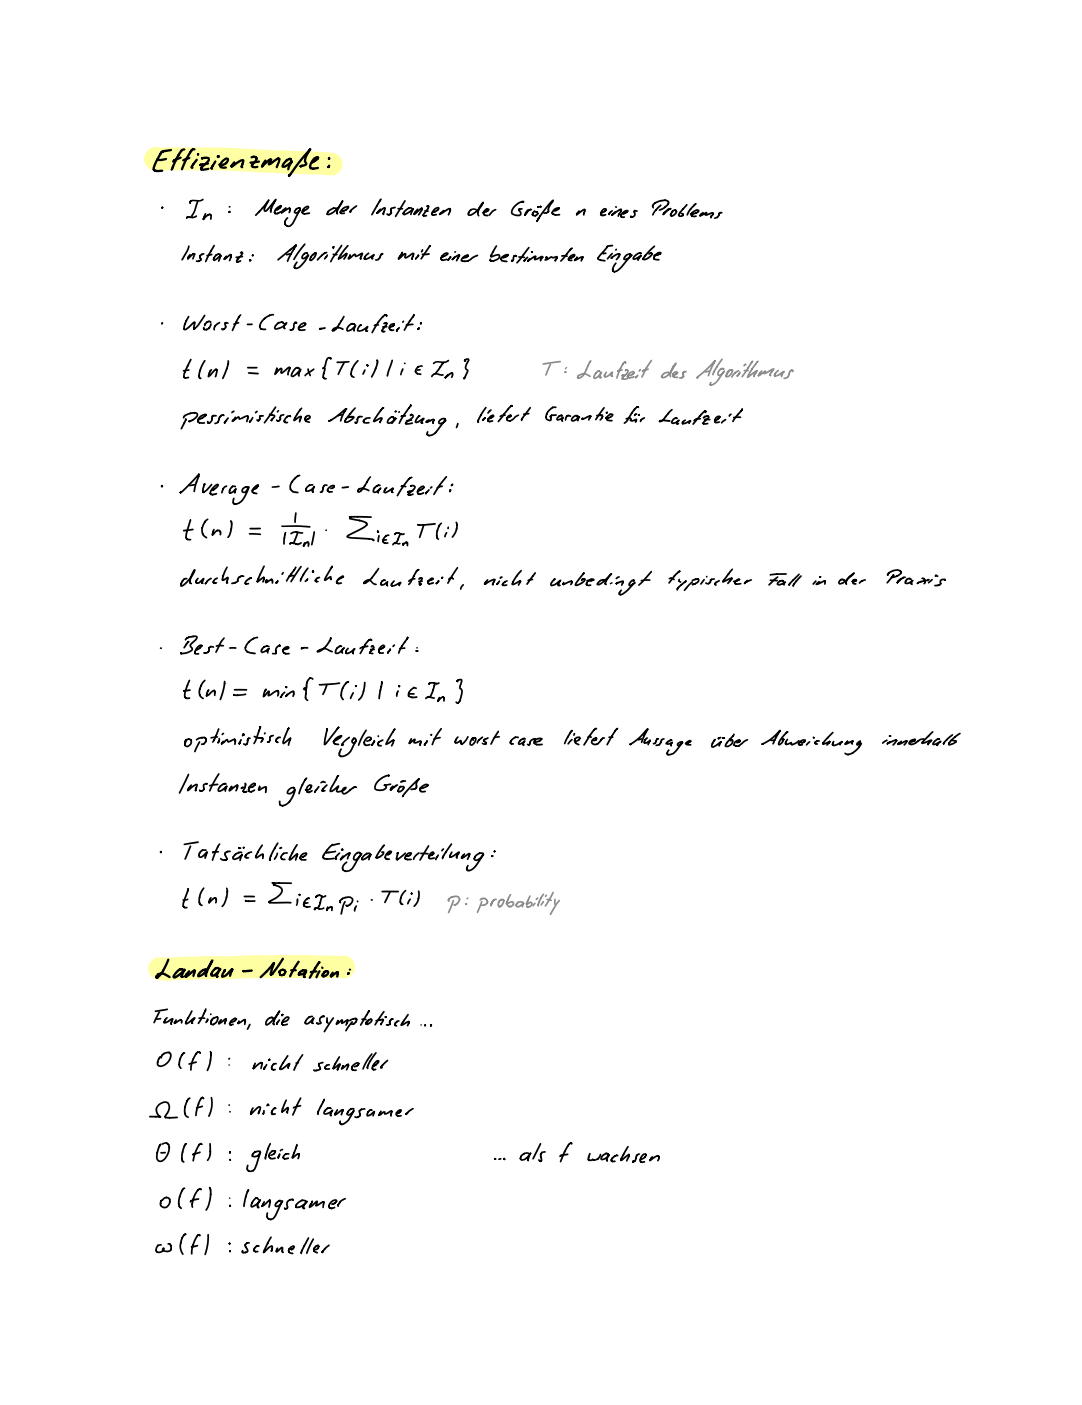 Effizienzmaße:
· Iₙ : Menge der Instanzen der Größe n eines Problems
Instanz: Algorithmus mit einer bestimmten Eingabe
· Worst-Case-Laufzeit:
t(n) = max{T(i) | i ∈ Iₙ} T: Laufzeit des Algorithmus
pessimistische Abschätzung, liefert Garantie für Laufzeit
· Average-Case-Laufzeit:
t(n) = 1/|Iₙ| · ∑i∈Iₙ T(i)
durchschnittliche Laufzeit, nicht unbedingt typischer Fall in der Praxis
· Best-Case-Laufzeit:
t(n) = min{T(i) | i ∈ Iₙ}
optimistisch Vergleich mit worst case liefert Aussage über Abweichung innerhalb
Instanzen gleicher Größe
· Tatsächliche Eingabeverteilung:
t(n) = ∑i∈Iₙ pᵢ · T(i) p: probability
Landau-Notation:
Funktionen, die asymptotisch ...
O(f) : nicht schneller
Ω(f) : nicht langsamer
θ(f) : gleich ... als f wachsen
o(f) : langsamer
ω(f) : schneller